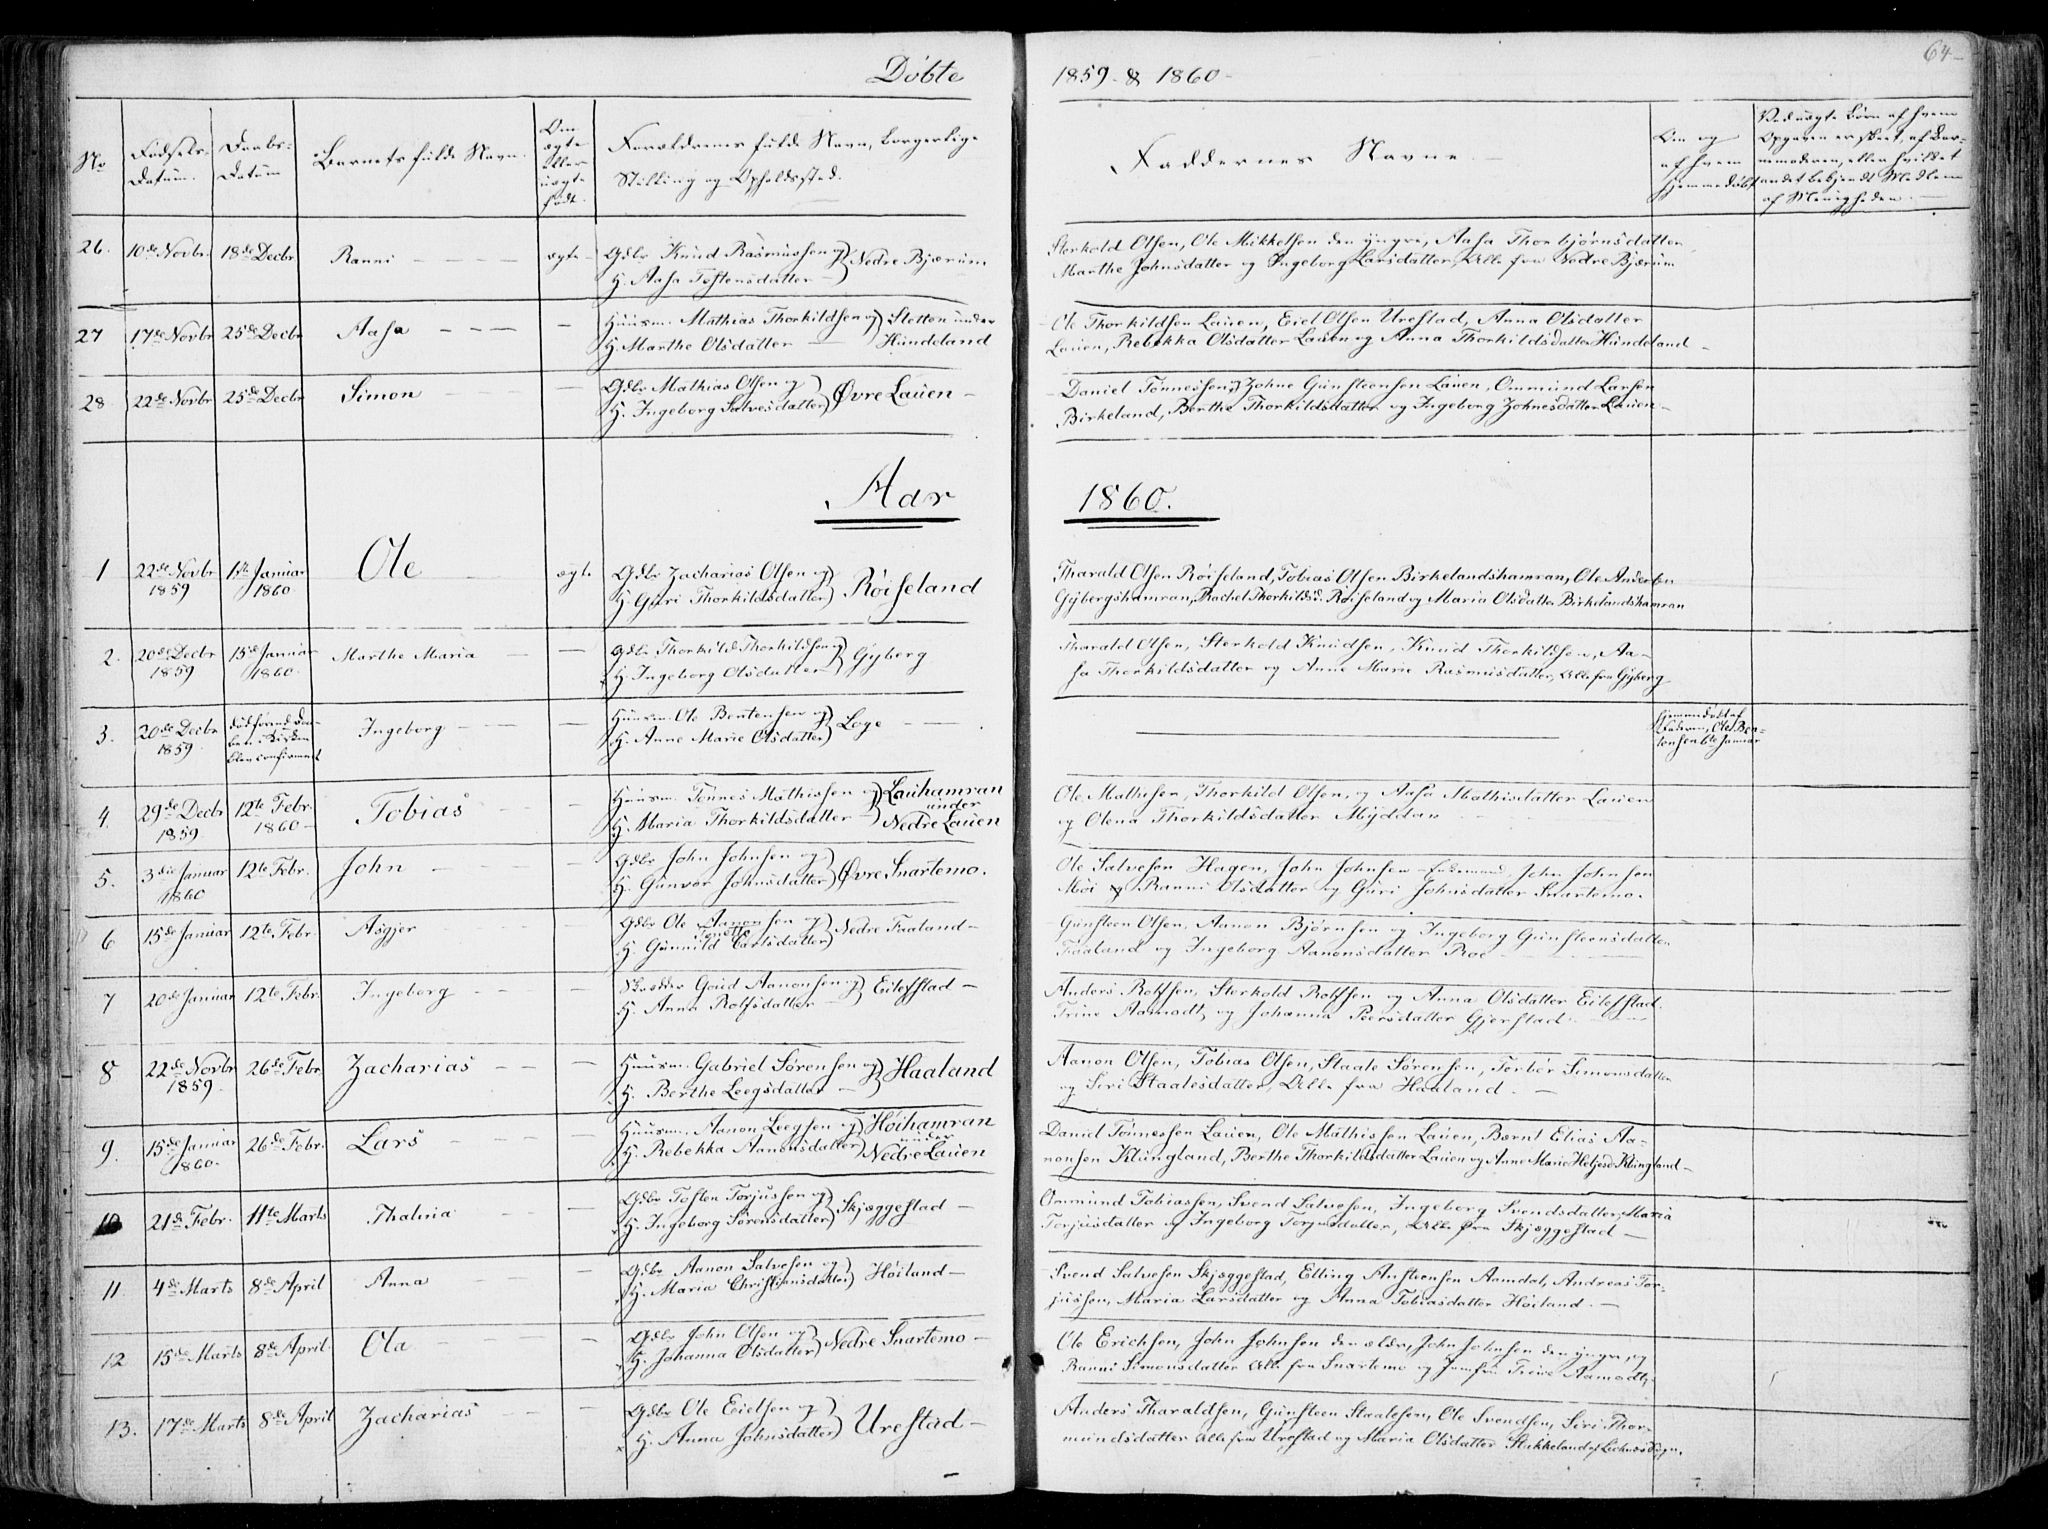 Døbte 1859 & 1860
64
No
Fødsels-
Datum.
Daabs-
Datum
Barnets fulde Navn.
Om
ægte
eller
uægte
født.
Forældrenes fulde Navn, borgerlige
Stilling og Opholdssted.
Faddernes Navne.
Om og
af hvem
hjemmedøbt
Ved uægte Børn af hvem
Opgaven er skeet, af Bar-
nemoderen, eller hvilket
andet bekjendt Medlem
af Menigheden.
26. 10de Novbr. 18de Decbr Ranni ægte Gdbr Knud Rasmussen og Nedre Bjærum
H. Aasa Tostensdatter
Sterkold Olsen, Ole Mikkelsen den yngre, Aasa Thorbjørnsdatter
Marthe Johnsdatter og Ingeborg Larsdatter, Alle fra Nedre Bjærum
27 17de Novbr 25de Decbr Aasa Huusm. Mathias Thorkildsen og Sletten under
H. Marthe Olsdatter Hundeland
Ole Thorkildsen Lauen, Eiel Olsen Urestad, Anna Olsdatter
Lauen, Rebekka Olsdatter Lauen og Anna Thorkildsdatter Hundeland
28 22de Novbr 25de Decbr Simon Gdbr Mathias Olsen og Øvre Lauen
H. Ingeborg Salvesdatter
Daniel Tønnessen og Zohne Gunsteensen Lauen, Ommund Larsen
Birkeland, Berthe Thorkildsdatter og Ingeborg Zohnesdatter Lauen
Aar 1860.
1 22de Novbr 1ste Januar Ole ægte Gdbr Zacharias Olsen og Røiseland
1859 1860 H. Guri Thorkildsdatter
Tharald Olsen Røiseland, Tobias Olsen Birkelandshamran, Ole Andersen
Gyberghamran, Rachel Thorkildsd. Røiseland og Maria Olsdatter Birkelandshamran
2. 20de Decbr 15de Januar Marthe Maria Gdbr Thorkild Thorkildsen og Gyberg
1859 1860. H. Ingeborg Olsdatter
Tharald Olsen, Sterkold Knudsen, Knud Thorkildsen, Aa-
sa Thorkildsdatter og Anne Marie Rasmusdatter, Alle fra Gyberg
3. 20de Decbr Ingeborg Huusm. Ole Bentensen og Loge
1859. H. Anne Marie Olsdatter
hjemmedøbt af
Faderen, Ole Ben-
tensen 6te Januar
4. 29de Decbr 12te Febr. Tobias Huusm. Tønnes Mathissen og Lauhamran
1859 1860 H. Maria Thorkildsdatter under
Nedre Lauen
Ole Mathisen, Thorkild Olsen, og Aasa Mathisdatter Lauen
og Olena Thorkildsdatter Myddan
5. 3die Januar 12te Febr. John Gdbr John Johnsen og Øvre Snartemo.
1860 H. Gunvor Johnsdatter
Ole Salvesen Hagen, John Johnsen John Johnsen
Moi og Ranni Olsdatter og Guri Johnsdatter Snartemo.
6 15de Januar 12te Febr. Asgjer Gdbr Ole Aanonsen og Nedre Faaland
H. Gunnild Tonette Carlsdatter
Gunsteen Olsen, Aanon Bjørnsen og Ingeborg Gunsteensdatter
Faaland og Ingeborg Aanonsdatter Roe
7 20de Januar 12te Febr. Ingeborg Skrædder Goud Aanonsen og Eilefstad
H. Anna Rolfsdatter
Anders Rolfsen, Sterkold Rolfsen og Anna Olsdatter Eilefstad.
Trine Aamodt, og Johanna Peersdatter Gjerstad.
8 22de Novbr 26de Febr. Zacharias Huusm. Gabriel Sørensen og Haaland
1859. H. Berthe Leegsdatter
Aanon Olsen, Tobias Olsen, Staale Sørensen, Torbor Simonsdatter
og Siri Staalesdatter, Alle fra Haaland.
9. 15de Januar 26de Febr. Lars Huusm. Aanon Leegsen og Høihamran
1860. H. Rebekka Aanonsdatter under
Nedre Lauen
Daniel Tønnessen Lauen, Ole Mathissen Lauen, Bernt Elias Aa-
nonsen Klungland, Berthe Thorkildsdatter Lauen og Anne Marie Heljesd. Klungland
10 21de Febr. 11te Marts Thalina Gdbr Tosten Torjussen og Skjæggestad
H. Ingeborg Sørensdatter
Ommund Tobiassen, Svend Salvesen, Ingeborg Svendsdatter, Maria
Torjusdatter og Ingeborg Torjusdatter, Alle fra Skjæggestad
11 4de Marts 8de April Anna Gdbr Aanon Salvesen og Høiland
H. Maria Christiansdatter
Svend Salvesen Skjæggestad, Elling Ansteensen Aamdal, Andreas Tor-
jussen, Maria Larsdatter og Anna Tobiasdatter Høiland.
12 15de Marts 8de April. Ola Gdbr John Olsen og Nedre Snartemo
H. Johanna Olsdatter
Ole Erichsen, John Johnsen den ældre, John Johnsen den yngre, og
Ranni Simonsdatter Alle fra Snartemo og Jomfru Trine Aamodt.
13. 17de Marts 8de April Zacharias Gdbr Ole Eielsen og Urestad
H. Anna Johnsdatter
Anders Tharaldsen, Gunsteen Staalesen, Ole Svendsen, Siri Thor-
mundsdatter Alle fra Urestad og Maria Olsdatter Stakkeland